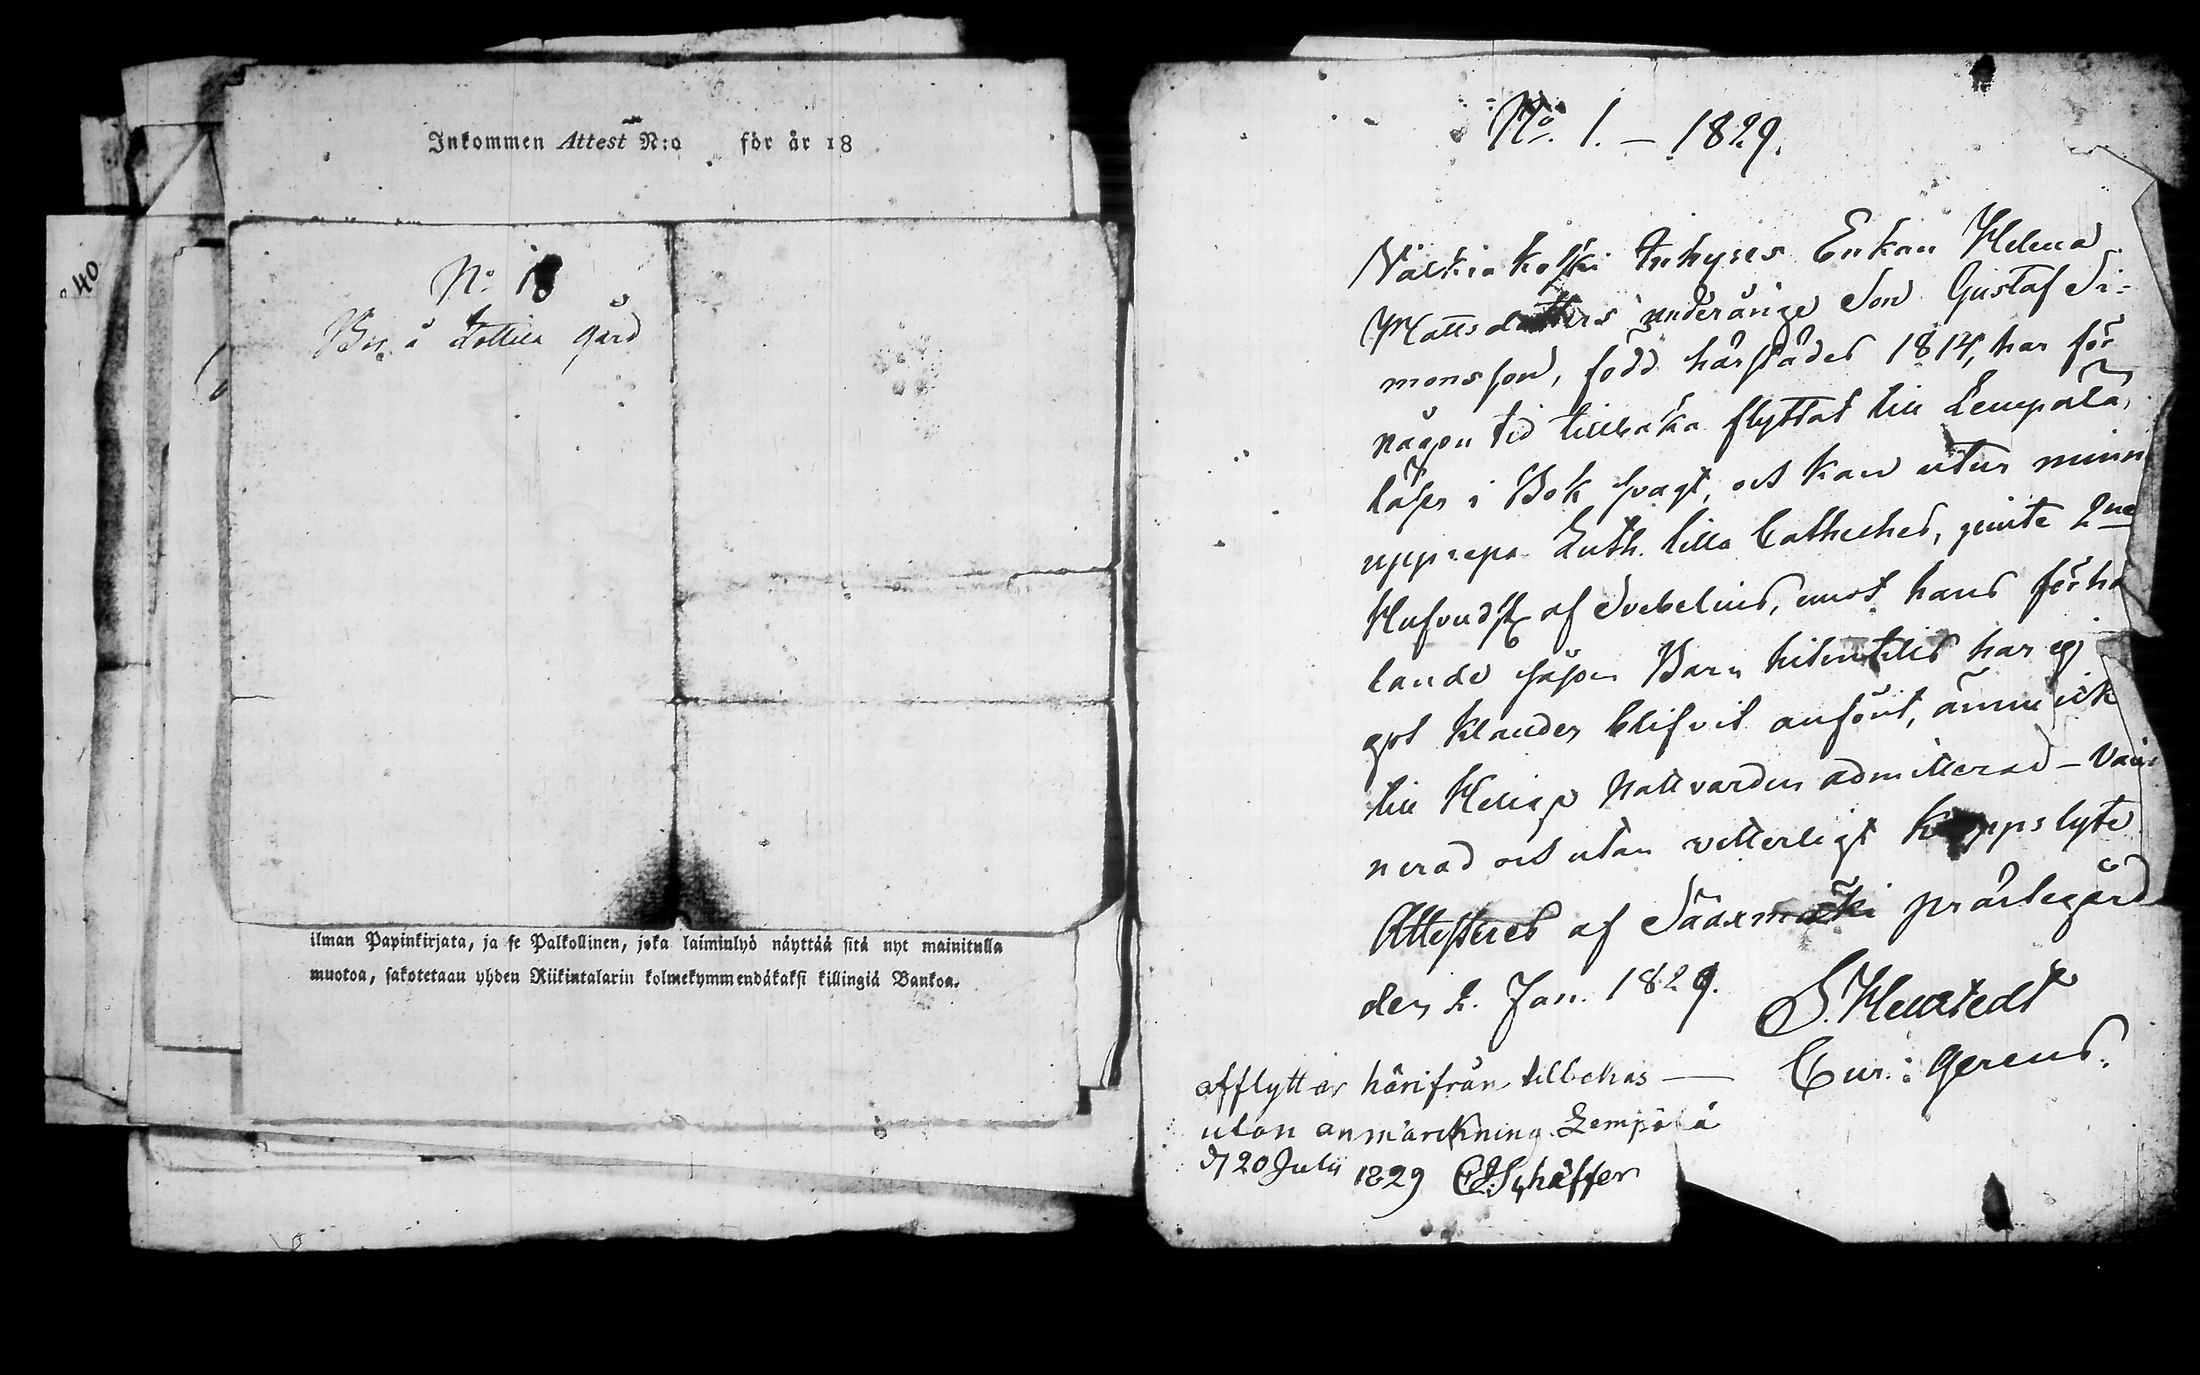 Inkommen Attest N:o för år 18
40
No 1
Bor å Lottila gård
ilman Papinkirjata, ja se Palkollinen, joka laiminlyö näyttää sitä nyt mainitulla
muotoa, sakotetaan yhden Riikintalarin kolmekymmendäkaksi killingiä Bankoa.
No. 1. – 1829.
Valkiakoski Inhyses Enkan Helena
Mattsdotters underårige Son Gustaf Si=
monsson, född härstädes 1814, har för
någon tid tillbaka flyttat till Lempälä,
läser i Bok svagt, och kan utur minn
upprepa Luth. lilla Catheches, jemte 2ne
Hufvudst af Svebelius, emot hans förhå
lande såsom Barn hitintills har ej
got klander blifvit anfört, ännu ick
till Helige Nattvarden admitterad – Vaci
nerad och utan vetterligt kroppslyte
Attesteres af Sääxmäki prästegård
den 2. Jan. 1829.
S. Hellstedt
Cur: gerens.
afflyttar härifrån tillbakas —
utan anmärckning Lempälä
d 20 Julii 1829 Schäffer